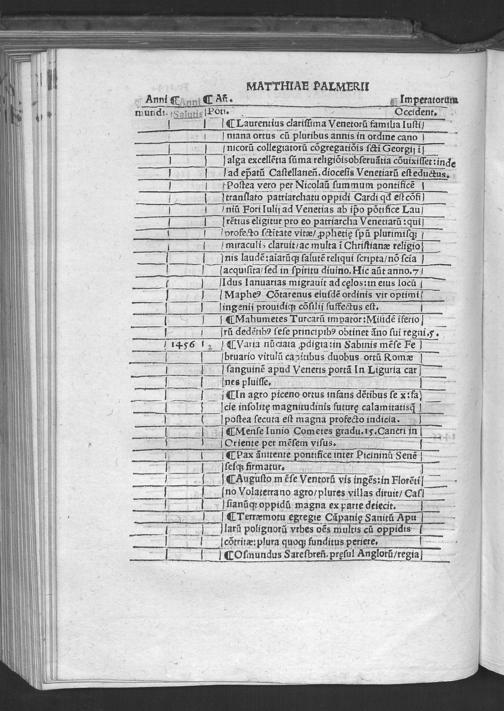 MATTHIAE PALMERII
Anni ¶Anni ¶Añ. ¶Imperatorum
mundi. Salutis Pon. Occident.
¶Laurentius clarissima Venetorū familia Iusti
niana ortus cū pluribus annis in ordine cano
nicorū collegiatorū cōgregatiōis scti Georgij i
alga excellētia sūma religiōis obseruātia cōuixisset: inde
ad epatū Castellaneñ. diocesis Venetiarū est eductus.
Postea vero per Nicolaū summum pontificē
translato patriarchatu oppidi Cardi qđ est cōfi
niū Fori Iulij ad Venetias ab ipo pōtifice Lau
rētius eligitur pro eo patriarcha Venetiarū: qui
profecto sctitate vitæ/ ꝓphetię spū plurimisqꝫ
miraculi claruit/ ac multa ī Christianæ religio
nis laudē: aiarūqꝫ salutē reliqui scripta/ nō scia
acquisita/ sed in spiritu diuino. Hic aūt anno. 7
Idus Ianuarias migrauit ad cęlos: in eius locū
Mapheꝰ Cōtarenus eiusdē ordinis vir optimi
ingenij prouidiqꝫ cōsilij suffectus est.
¶Mahumetes Turcarū impator: Miiidē iserio
rū dedētibꝰ sese principibꝰ obtinet āno sui regni. 5.
1456 2 ¶Varia nūciata ꝓdigia: in Sabinis mēse Fe
bruario vitulū capitibus duobus ortū Romæ
sanguinē apud Venetis portā In Liguria car
nes pluisse.
¶In agro piceno ortus infans dētibus se x: fa
cie insolitę magnitudinis futurę calamitatisqꝫ
postea secuta est magna profecto indicia.
¶Mense Iunio Cometes gradu. 15. Cancri in
Oriente per mēsem visus.
¶Pax ānitente pontifice inter Picininū Senē
sesqꝫ firmatur.
¶Augusto mēse Ventorū vis ingēs: in Florēti
no Volaterrano agro/ plures villas diruit/ Cas
sianūqꝫ oppidū magna ex parte deiecit.
¶Terræmotu egregie Cāpanię Sanitū Apu
larū polignorū vrbes oēs multis cū oppidis
cōtritæ: plura quoqꝫ funditus periere.
¶Osmundus Saresbreñ. pręsul Anglorū/ regia